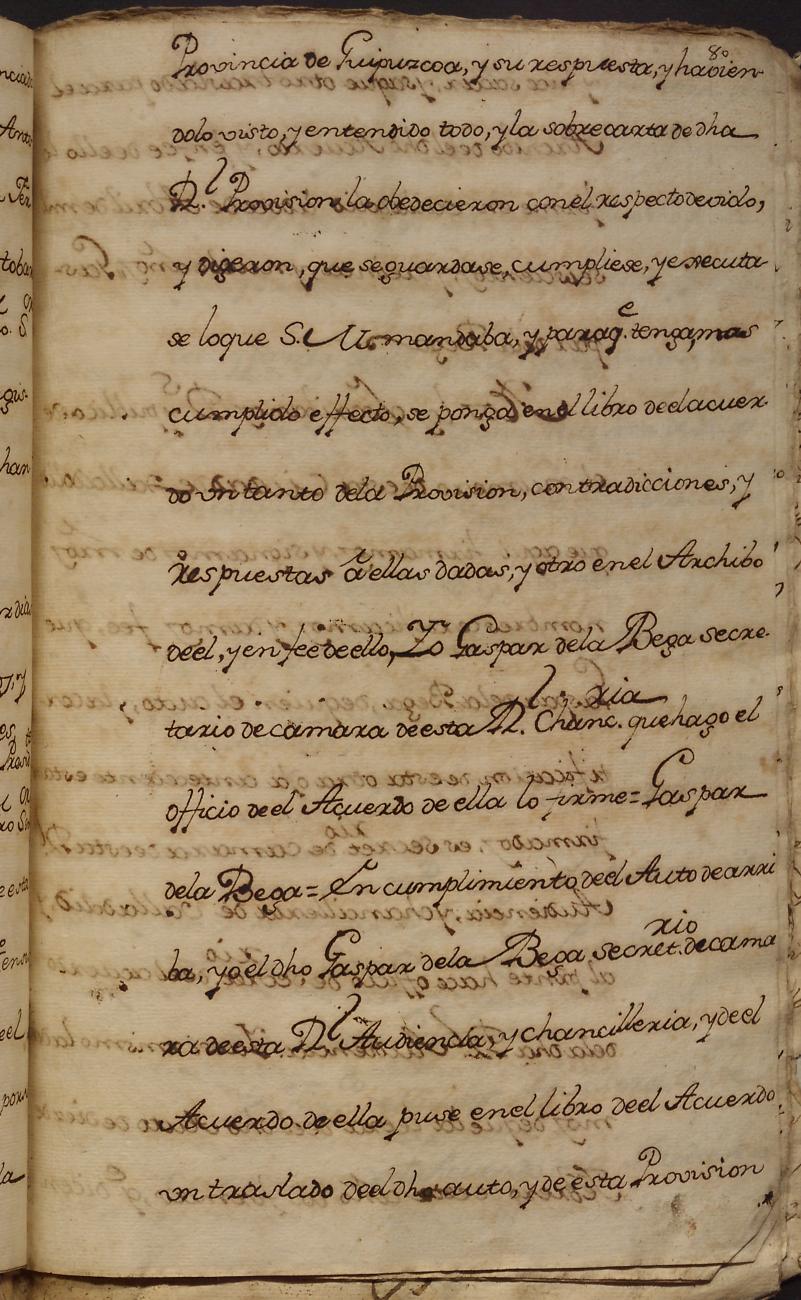 80
Provincia de Guipuzcoa, y su respuesta, y habien-
dolo visto, y entendido todo, y la sobrecarta de dha
R.l Provision la obedecieron con el respecto devido,
y digeron, que se guardase, cumpliese, y executa-
se loque S. M. mandaba, y paraq.e tenga mas
cumplido effecto, se ponga en el libro deel acuer-
do vn tanto dela Provision, contradicciones, y
respuestas à ellas dadas, y otro en el Archibo
deel, y en fee de ello, Yo Gaspar dela Bega secre-
tario de camara de esta R.l Chanc.ria que hago el
officio deel Acuerdo de ella lo firme = Gaspar
dela Bega = En cumplimiento deel Auto de arri
ba, yo el dho Gaspar dela Bega secret.rio de cama
ra de esta R.l Audiencia, y chancilleria, y deel
Acuerdo de ella puse en el libro deel Acuerdo
vn traslado deel dho auto, y de esta Provision